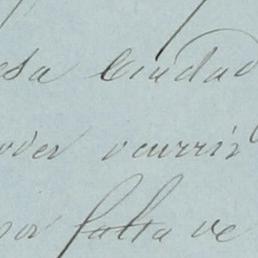 esa Ciudad
ocurrir
por falta de